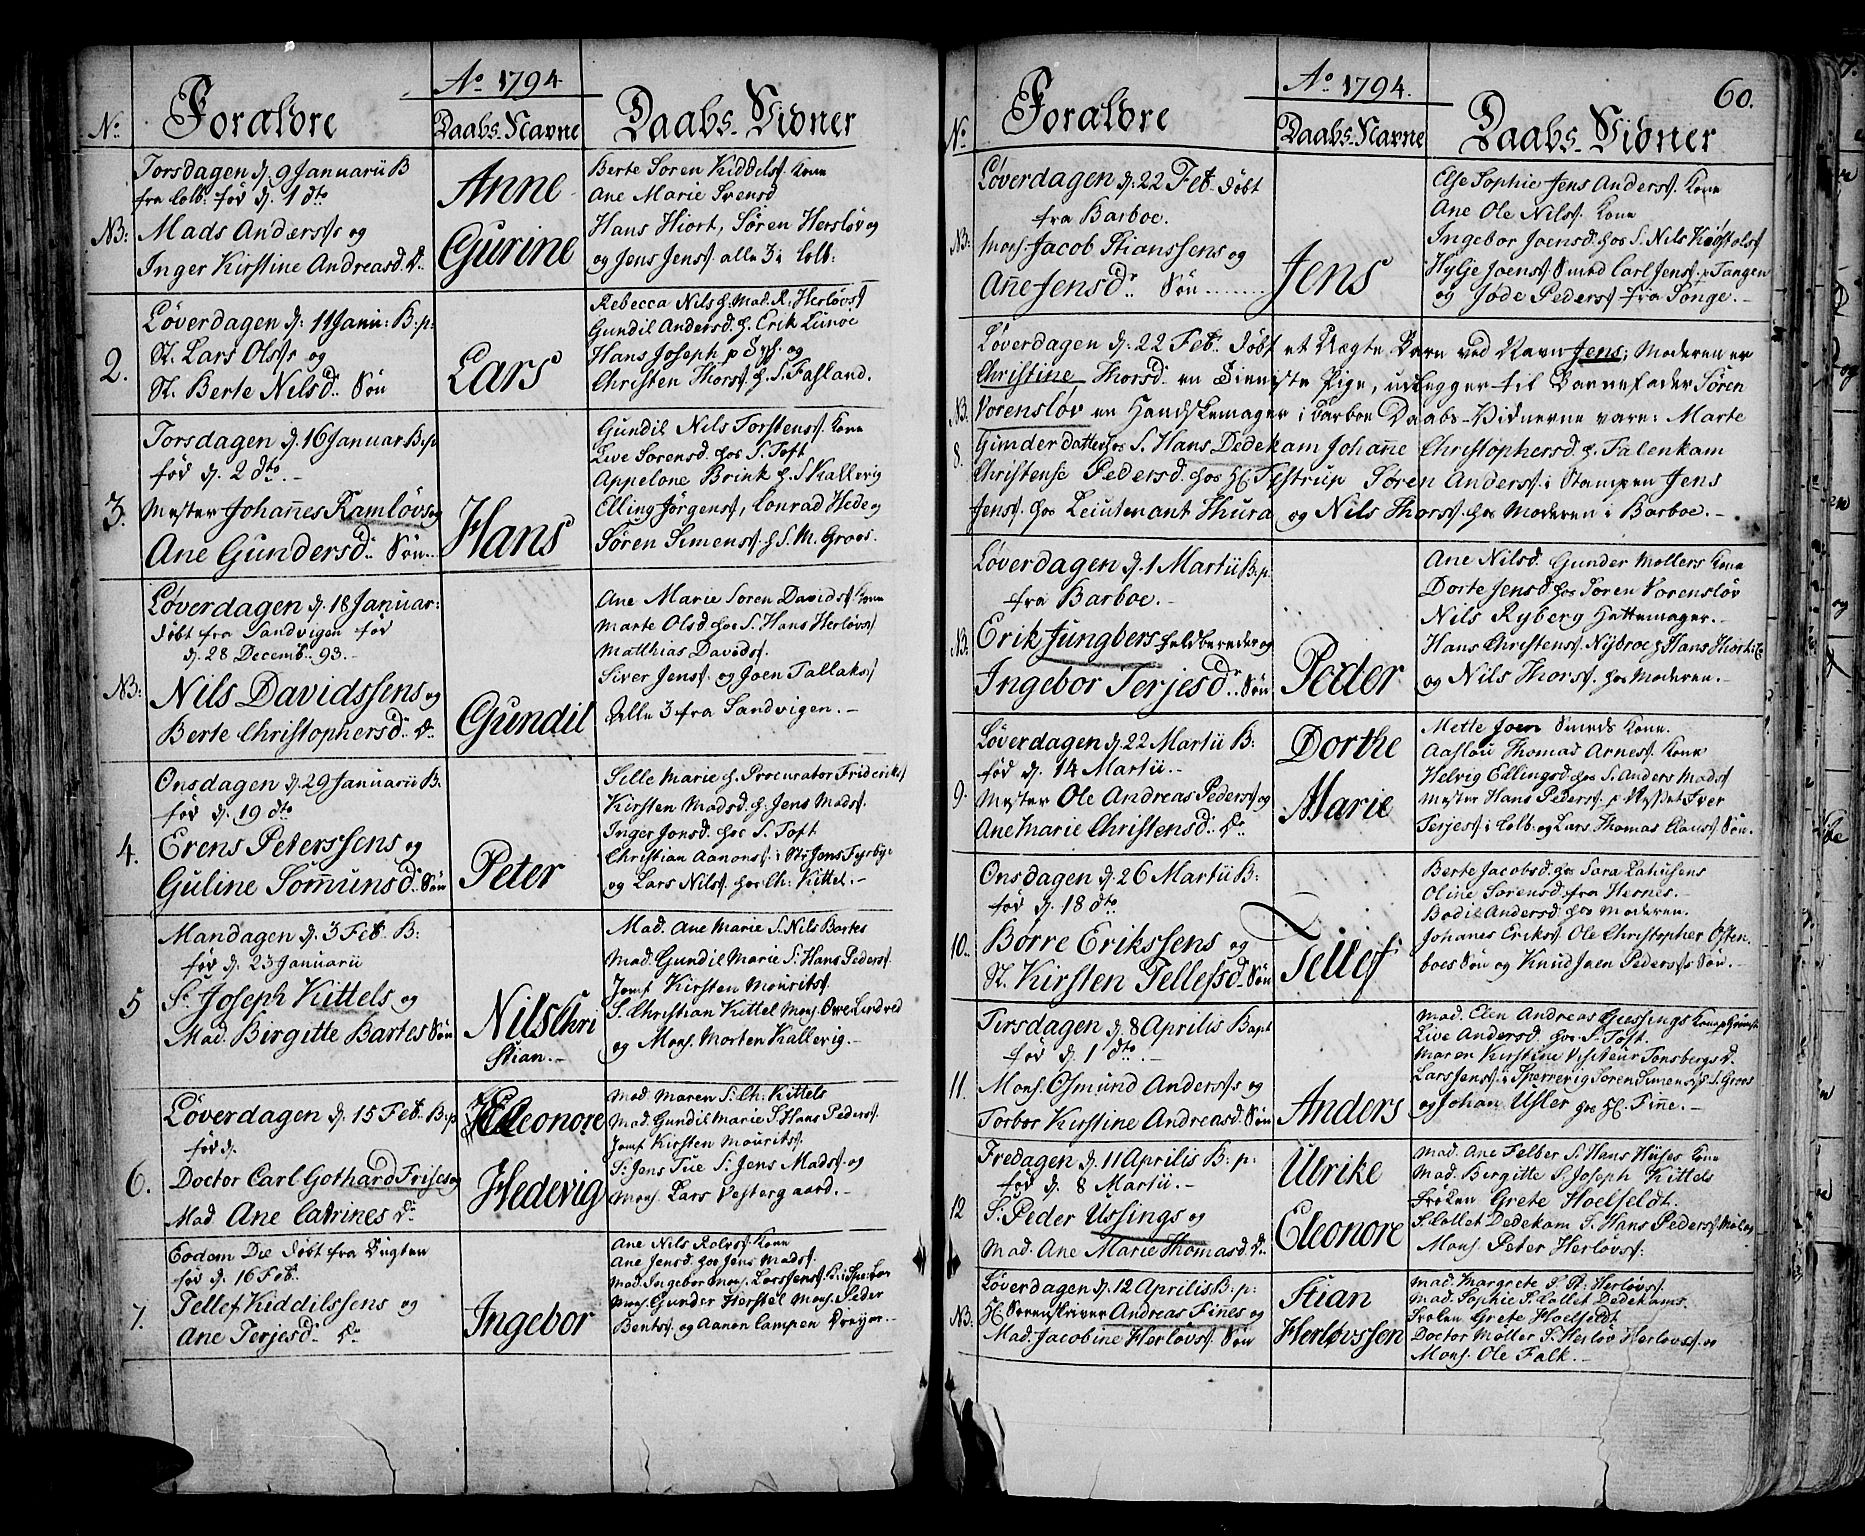 Ao 1794
No Forældre Daabs-Navne Daabs-Vidner
Torsdagen d. 9 Januarii B
fra Colb. fød d. 1 dto
NB: Mads Anderss og
Inger Kirstine Andreasd. D.
Anne
Gurine
Berte Søren Kiddelss. Kone
Ane Marie Svensd
Hans Hiort, Søren Herslöv og
og Jens Jenss. alle 3 i Colb:
Løverdagen d. 11 Janu: B:p:
2. St. Lars Olss og
St. Berte Nilsd. Søn
Lars
Rebecca Nils h. Mad. R. Herlövs
Gundil Andersd. h. Erik Lunöe
Hans Joseph p
Christen Thorss. h. S. Fasland.
Torsdagen d. 16 Januar B:p
fød d. 2 dto.
3. Mester Johannes Ramlövs og
Ane Gundersd. Søn
Hans
Gundil Nils Torstenss. Kone
Live Sørensd. hos S. Toft
Appelone Brink h. S. Kallevig
Elling Jörgenss, Conrad Hede og
Søren Simenss. h. S. M. Groos.
Løverdagen d. 18 Januar:
Døbt fra Sandvigen fød
d. 28 Decemb. 93.
NB: Nils Davidssens og
Berte Christophersd. D.
Gundil
Ane Marie Søren Davidss Kone
Marte Olsd. hos S. Hans Herlövs
Matthias Davidss.
Siver Jenss. og Joen Tallakss
Alle 3 fra Sandvigen.
Onsdagen d. 29 Januarii B.
fød d. 19 dto
4. Erens Peterssens og
Guline Somunsd. Søn
Peter
Sille Marie h. Procurator Friderikss
Kirsten Madsd. h. Jens Madss.
Inger Jonsd. hos S. Toft
Christian Aanonss. i Str Jens Fyrbye
og Lars Nilss. hos Ch: Kittel.
Mandagen d. 3 Feb. B:
fød d. 23 Januarii
5 Sr. Joseph Kittels og
Mad. Birgitte Bartes Søn
Nils Chri
stian.
Mad. Ane Marie S. Nils Bartes
Mad. Gundil Marie S. Hans Pederss.
Jomf. Kirsten Mouritss.
S. Christian Kittel Mons. Ove Lindved
og Mons. Morten Kallevig.
Løverdagen d. 15 Feb. B:p
fød d.
6. Doctor Carl Gothard Frises og
Mad. Ane Catrines D.
Eleonore
Hedevig
Mad Maren S. Ch. Kittels
Mad. Gundil Marie S. Hans Pederss.
Jomf Kirsten Mouritss.
Sr. Jens Tue Sr. Jens Madss og
Mons. Lars Vestergaard.
Eodem Die Døbt fra Bugten
fød d. 16 Feb.
7. Tellef Kiddilssens og
Ane Terjesd. D.
Ingebor
Ane Nils Rolvss. Kone
Ane Jensd. hos Jens Madss.
Mad. Ingebor Mons. Lars Jenss.
Mons. Gunder Herstel Mons. Peder
Bentss. og Aanon Campen
60.
Ao 1794.
No Forældre Daabs-Navne Daabs-Vidner
Løverdagen d. 22 Feb. Døbt
fra Barboe.
NB: Mons. Jacob Stianssens og
Ane Jensd. Søn
Jens
Else Sophie Jens Anderss. Kone
Ane Ole Nilss. Kone
Ingebor Joensd. hos S. Nils
Hylje Joenss. Smed Carl Jenss. p Tangen
og Jøde Pederss fra Songe.
Løverdagen d. 22 Feb. Døbt et Uægte Barn ved Navn Jens; Moderen er
Christine Thorsd. en Tieniste Pige, udlegger til Barnefader Søren
NB. Vorenslöv en Handskemager i Barboe Daabs-Vidnerne vare: Marte
8. Gunder datter hos S. Hans Dedekam Johanne Christophersd. h. Falenkam
Christense Pedersd. hos H. Testrup Søren Anderss. i Stampen Jens
Jenss. hos Leiutenant Thura og Nils Thorss hos Moderen i Barboe.
Løverdagen d. 1 Martii B:p
fra Barboe.
NB. Erik Jungbers Feldbereder og
Ingebor Terjesd. Søn
Peder
Ane Nilsd. Gunder Møllers Kone
Dorte Jensd hos Søren Vorenslöv
Nils Ryberg Hattemager.
Hans Christenss. Nybroe h Hans Hiort i C
og Nils Thorss. hos Moderen.
Løverdagen d. 22 Martii B:
fød d. 14 Martii.
9. Mester Ole Andreas Pederss og
Ane Marie Christensd. D.
Dorthe
Marie
Mette Joen Smeds Kone.
Aaslou Thomas Arness. Kone
Helvig Ellingsd hos S. Anders Madss
Mester Hans Pederss. p Iver
Terjess i Colb. og Lars Thomas Clauss Søn.
Onsdagen d. 26 Martii B:
fød d. 18 dto
10. Börre Erikssens og
St. Kirsten Tellefsd. Søn
Tellef
Berte Jacobsd. hos Sara Lahusens
Oline Sörensd. fra Hernes.
Bodil Andersd. hos Moderen.
Johanes Erikss Ole Christopher Østen
boes Søn og Knud Joen Pederss Søn.
Tirsdagen d. 8 Aprilis Bapt
fød d. 1 dto.
11. Mons. Osmund Anderss og
Torbor Kirstine Andreasd. Søn
Anders
Mad. Elen Andreas Giessings Kone
Live Andersd. hos S. Toft.
Maren Kirstine Visiteur Tonsbergs D.
Lars Jenss i Sperrevig Søren Simenss h. S. Groos
og Johan Usler hos H. Finne.
Fredagen d. 11 Aprilis B: p:
fød d. 8 Martii.
12 S. Peder Ussings og
Mad. Ane Marie Thomasd. D.
Ulrike
Eleonore
Mad. Ane Felber S. Hans Huses Kone
Mad. Birgitte S. Joseph Kittels
Frøken Grete Hoelfeldt.
S. Collet Dedekam S. Hans Pederss.
Mons. Peter Herlövss.
Løverdagen d. 12 Aprilis B: p:
NB. H. Sorenskriver Andreas Finnes og
Mad. Jacobine Herlövss. Søn
Stian
Herlövssen
Mad. Margrete S. P. Herlövss.
Mad. Sophie S. Collet Dedekams.
Frøken Grete Hoelfeldt
Doctor Møller S. Herlöv Herlövss. og
Mons. Ole Falk.